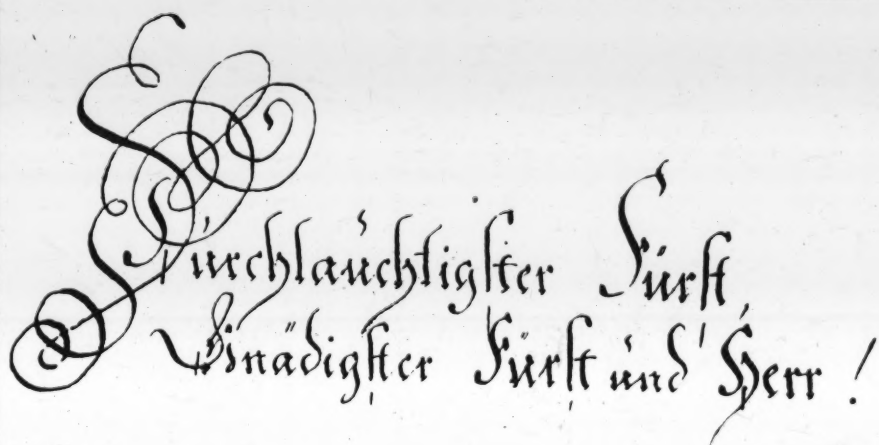 Durchlauchtigster Fürst,
Gnädigster Fürst und Herr!